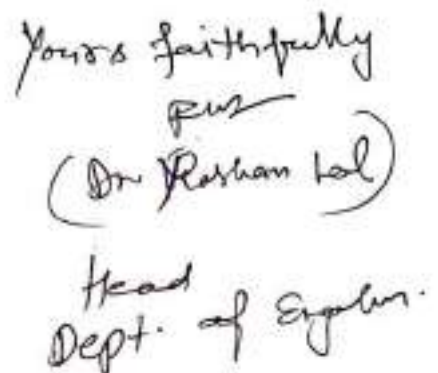 Yours faithfully
(Dr Roshan Lal)
Head
Dept. of